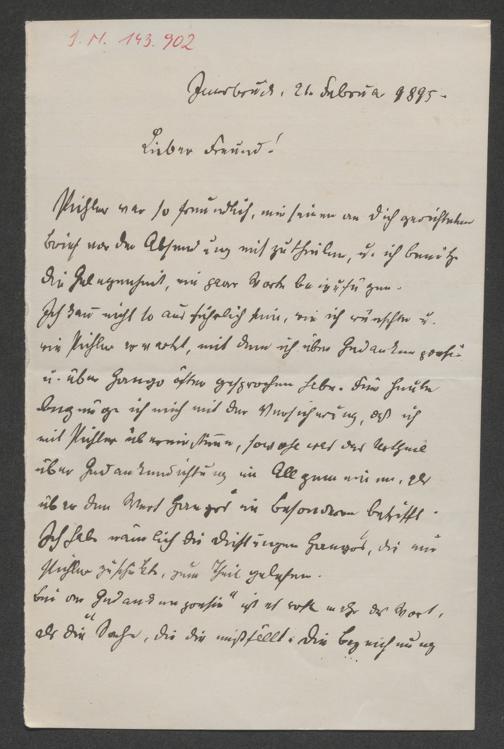 J. N. 143.902
Innsbruck, 21. Februar 1895.
Lieber Freund!
Pichler war so freundlich, mir seinen an Dich gerichteten
Brief vor der Absendung mitzutheilen, u. ich benütze
die Gelegenheit, ein paar Worte beizufügen.
Ich kann nicht so ausführlich sein, wie ich wünschte u.
wie Pichler erwartet, mit dem ich über Gedankenpoesie
u. über Hango öfter gesprochen habe. Für heute
begnüge ich mich mit der Versicherung, daß ich
mit Pichler übereinstimme, sowohl was das Urtheil
über Gedankendichtung im Allgemeinen, als
über den Wert Hangos im Besonderen betrifft.
Ich habe nämlich die Dichtungen Hangos, die mir
Pichler zuschickte, zum Theil gelesen.
Bei der Gedankenpoesie" ist es wohl mehr das Wort,
als die Sache, die dir mißfällt. Die Bezeichnung